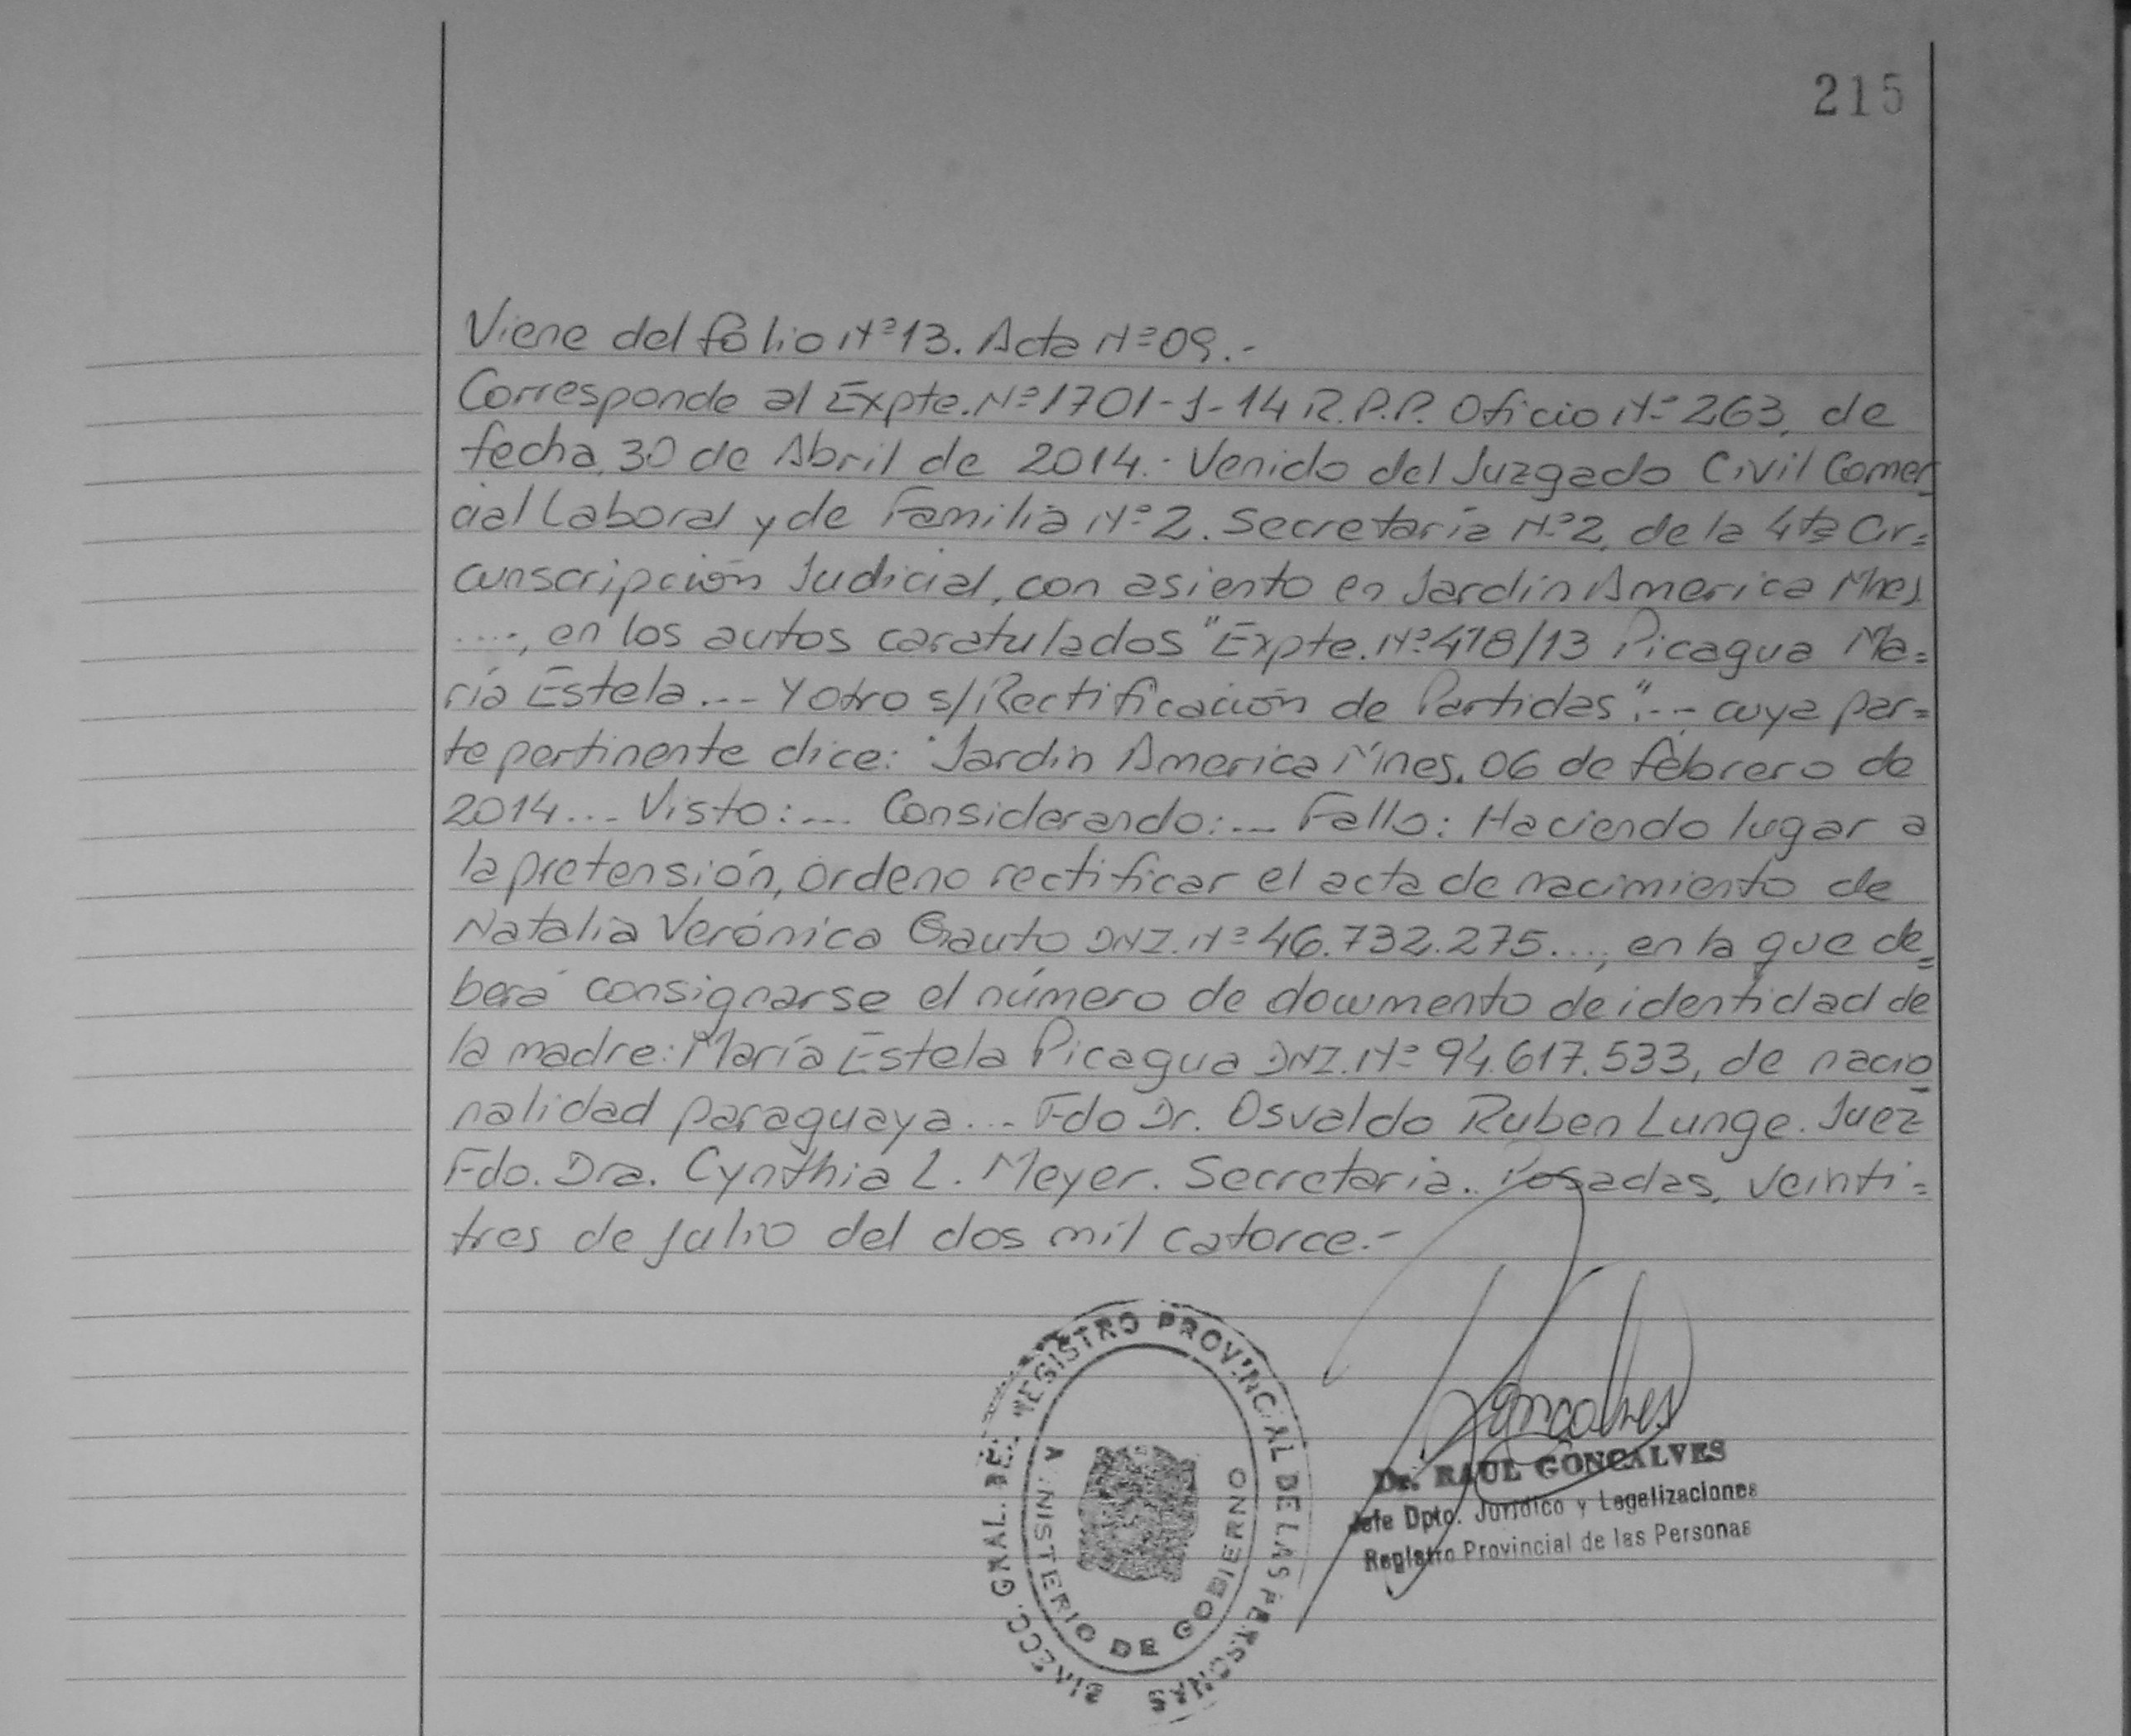 215
Viene del folio Nº 13. Acta Nº 09.-
Corresponde al Expte. Nº 1701-J-14 R.P.P. Oficio Nº 263, de
fecha, 30 de Abril de 2014.- Venido del Juzgado Civil Comer
cial Laboral y de Familia Nº 2. Secretaría Nº 2, de la 4ta Cir=
cunscripción Judicial, con asiento en Jardín America Mnes.
...., en los autos caratulados "Expte. Nº 478/13 Picagua Ma=
ría Estela... Y otro s/Rectificación de Partidas"... cuya par=
te pertinente dice: "Jardín America Mnes. 06 de febrero de
2014... Visto:... Considerando:... Fallo: Haciendo lugar a
la pretensión, ordeno rectificar el acta de nacimiento de
Natalia Verónica Gauto DNI. Nº 46.732.275..., en la que de=
berá consignarse el número de documento de identidad de
la madre: María Estela Picagua DNI. Nº 94.617.533, de nacio
nalidad paraguaya... Fdo Dr. Osvaldo Ruben Lunge. Juez
Fdo. Dra. Cynthia L. Meyer. Secretaria. Posadas, veinti=
tres de julio del dos mil catorce.-
DIRECC. GRAL. DEL REGISTRO PROVINCIAL DE LAS PERSONAS
MINISTERIO DE GOBIERNO
Goncalves
Dr. RAUL GONCALVES
Jefe Dpto. Jurídico y Legalizaciones
Registro Provincial de las Personas